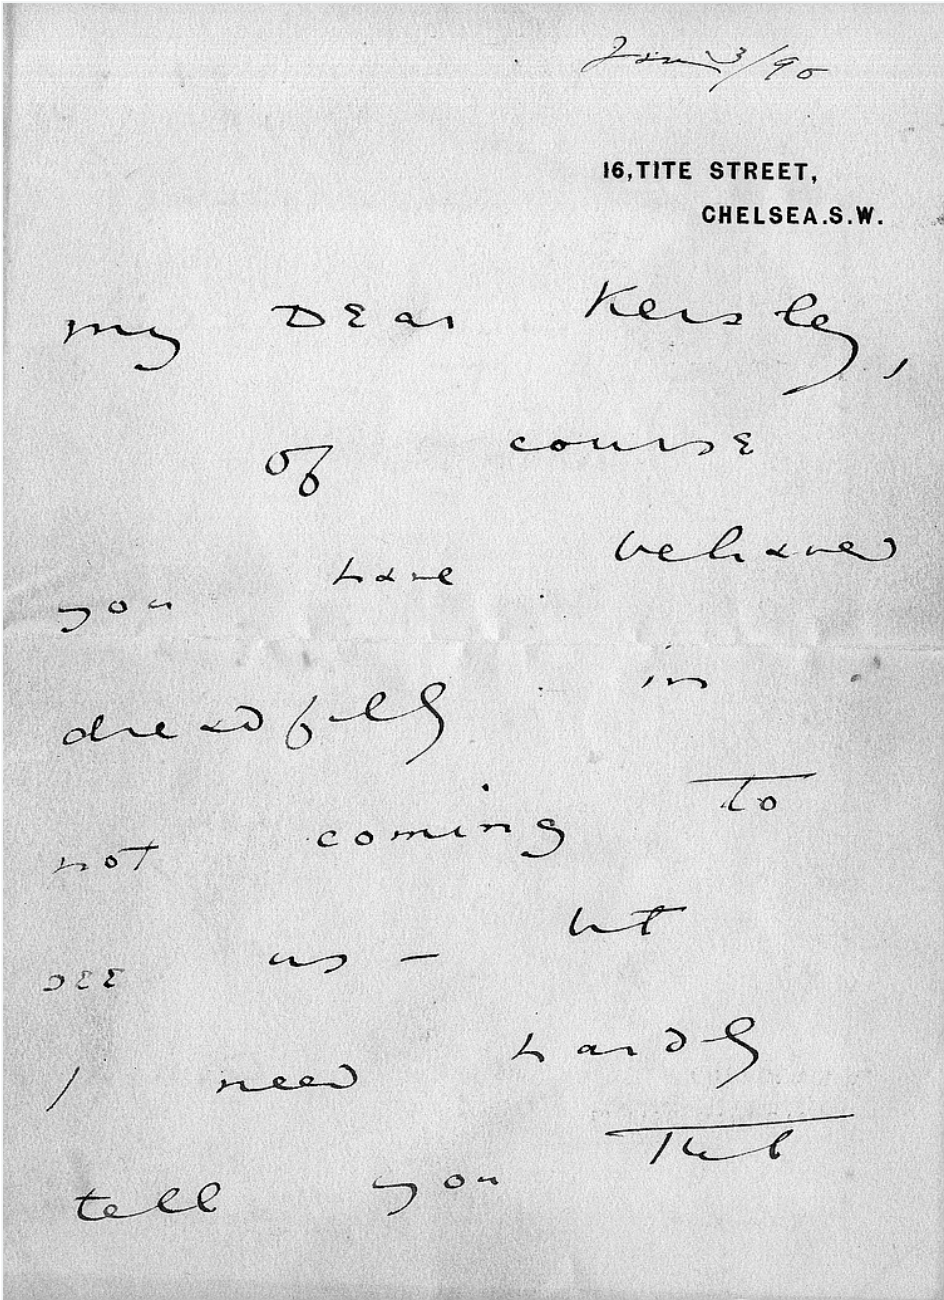 Jan 3/95
16, TITE STREET,
CHELSEA. S.W.
my Dear Kersley,
of course
you have behaved
dreadfully in
not coming to
see us - but
I need hardly
tell you that